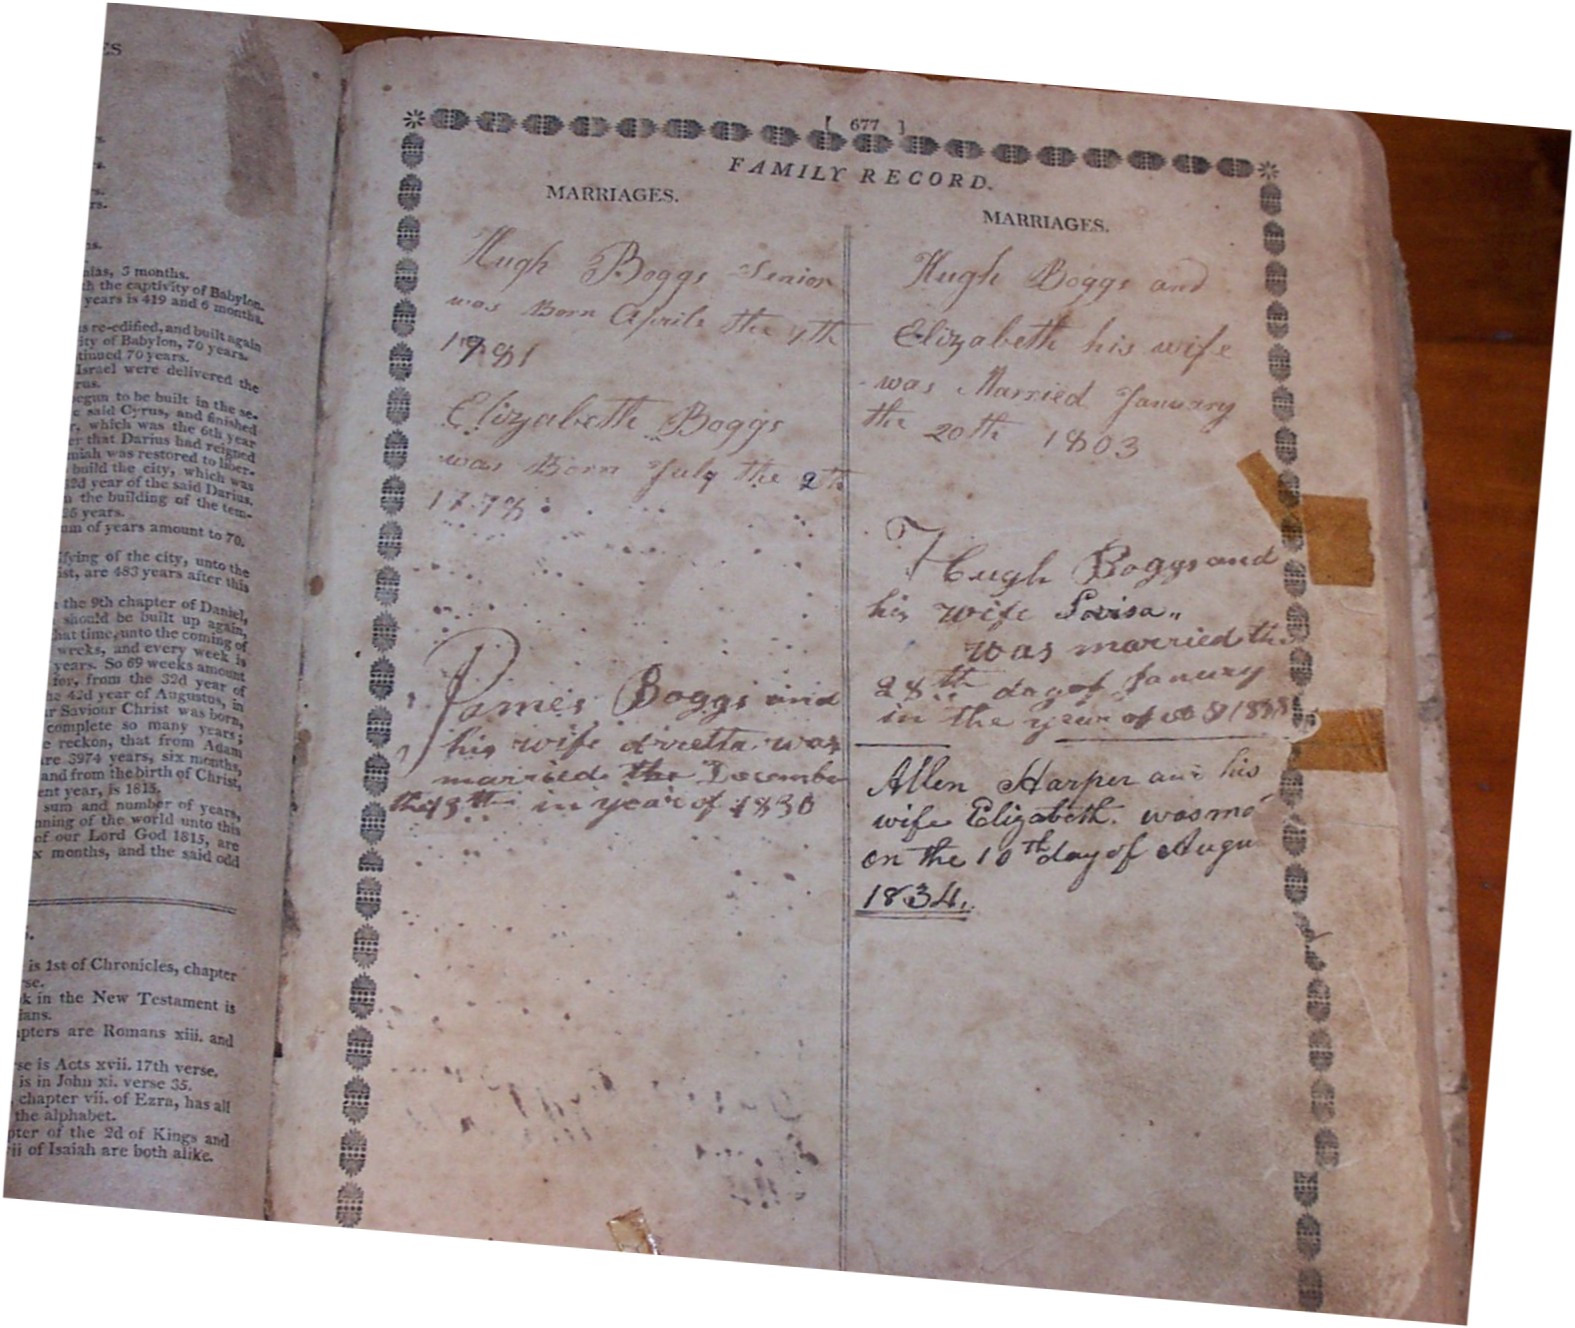 ES
rs.
as.
nias, 3 months.
th the captivity of Babylon.
years is 419 and 6 months.
s re-edified, and built again
ity of Babylon, 70 years.
tinued 70 years.
Israel were delivered the
rus.
egun to be built in the se-
e said Cyrus, and finished
r, which was the 6th year
er that Darius had reigned
miah was restored to liber-
build the city, which was
2d year of the said Darius.
n the building of the tem-
25 years.
um of years amount to 70.
ifying of the city, unto the
ist, are 483 years after this
n the 9th chapter of Daniel,
should be built up again,
hat time, unto the coming of
weeks, and every week is
years. So 69 weeks amount
for, from the 32d year of
he 42d year of Augustus, in
ur Saviour Christ was born,
complete so many years;
e reckon, that from Adam
are 3974 years, six months,
and from the birth of Christ,
ent year, is 1815.
sum and number of years,
nning of the world unto this
of our Lord God 1815, are
x months, and the said odd
is 1st of Chronicles, chapter
rse.
k in the New Testament is
ians.
apters are Romans xiii. and
se is Acts xvii. 17th verse.
is in John xi. verse 35.
chapter vii. of Ezra, has all
the alphabet.
pter of the 2d of Kings and
ii of Isaiah are both alike.
[ 677 ]
FAMILY RECORD.
MARRIAGES.
Hugh Boggs Senior
was Born Aprile the 7th
1781
Elizabeth Boggs
was Born July the 2th
1778
James Boggs and
his wife was
married the December
the 13th in year of 1830
MARRIAGES.
Hugh Boggs and
Elizabeth his wife
was Married January
the 20th 1803
Hugh Boggs and
his wife Lovisa
was married the
28th day of Janury
in the year of
Allen Harper and his
wife Elizabeth. was ma
on the 10th day of Augu
1834.